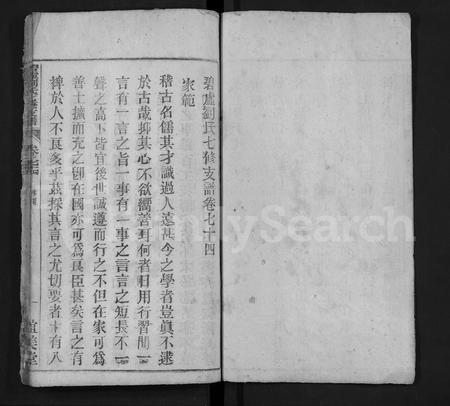 碧廬劉氏七修支譜卷七十四
家範
稽古名儒其才識過人遠甚今之學者豈眞不逮
於古哉抑其心不欲嚮善耳何者日用行習間一
言有一言之旨一事有一事之言言之短長不一
聲之高下皆宜後世誠遵而行之不但在家可爲
善士擴而充之卽在國亦可爲良臣甚矣言之有
裨於人不良多乎茲採其言之尤切要者十有八
家範
一
FamilySearch